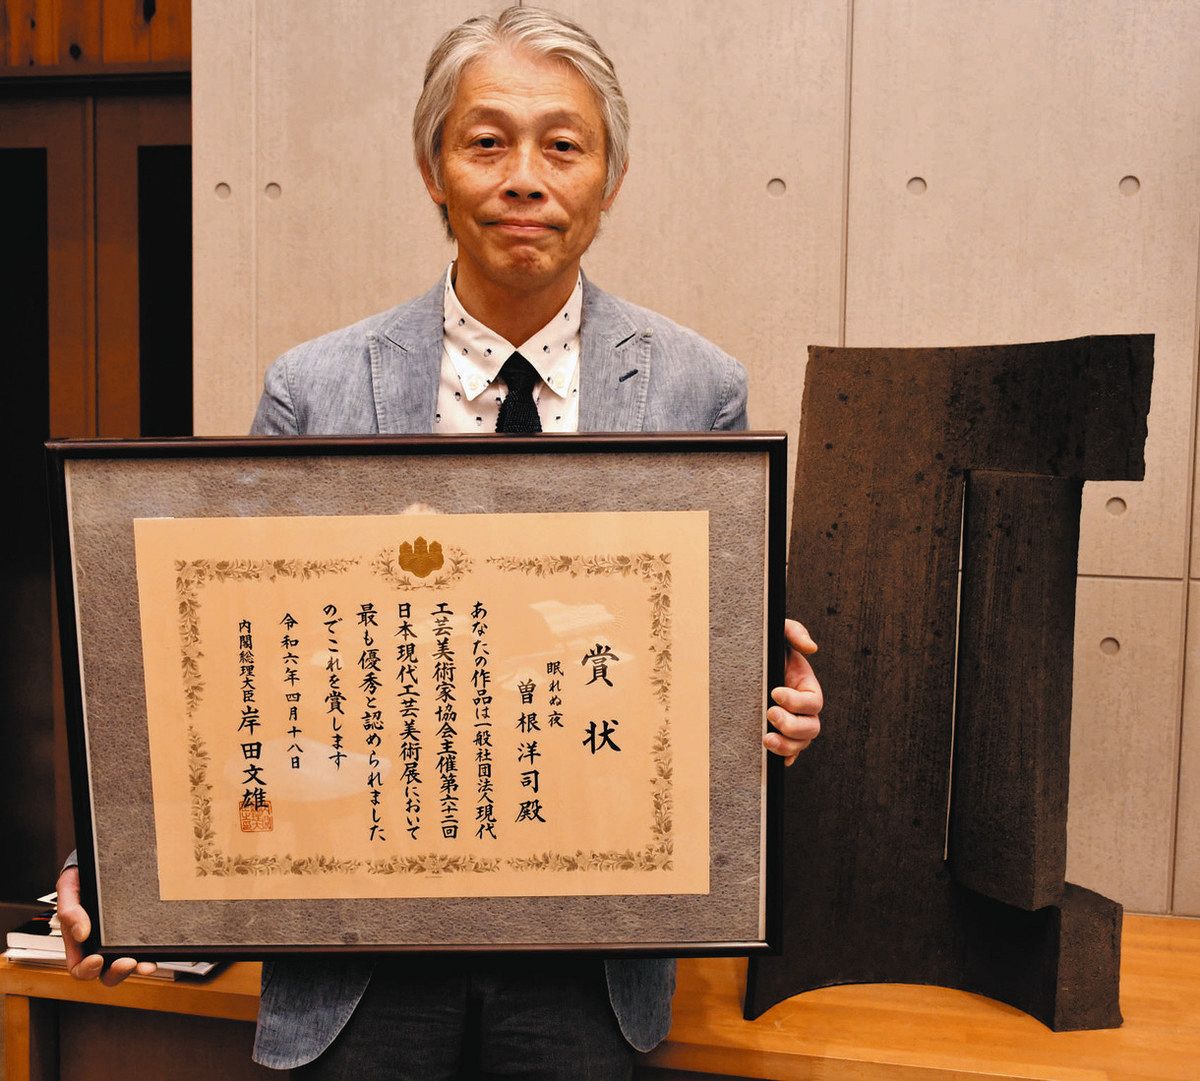 賞状
眠れぬ夜
曽根洋司殿
あなたの作品は一般社団法人現代
工芸美術家協会主催第六十二回
日本現代工芸美術展において
最も優秀と認められました
のでこれを賞します
令和六年四月十八日
内閣総理大臣 岸田文雄